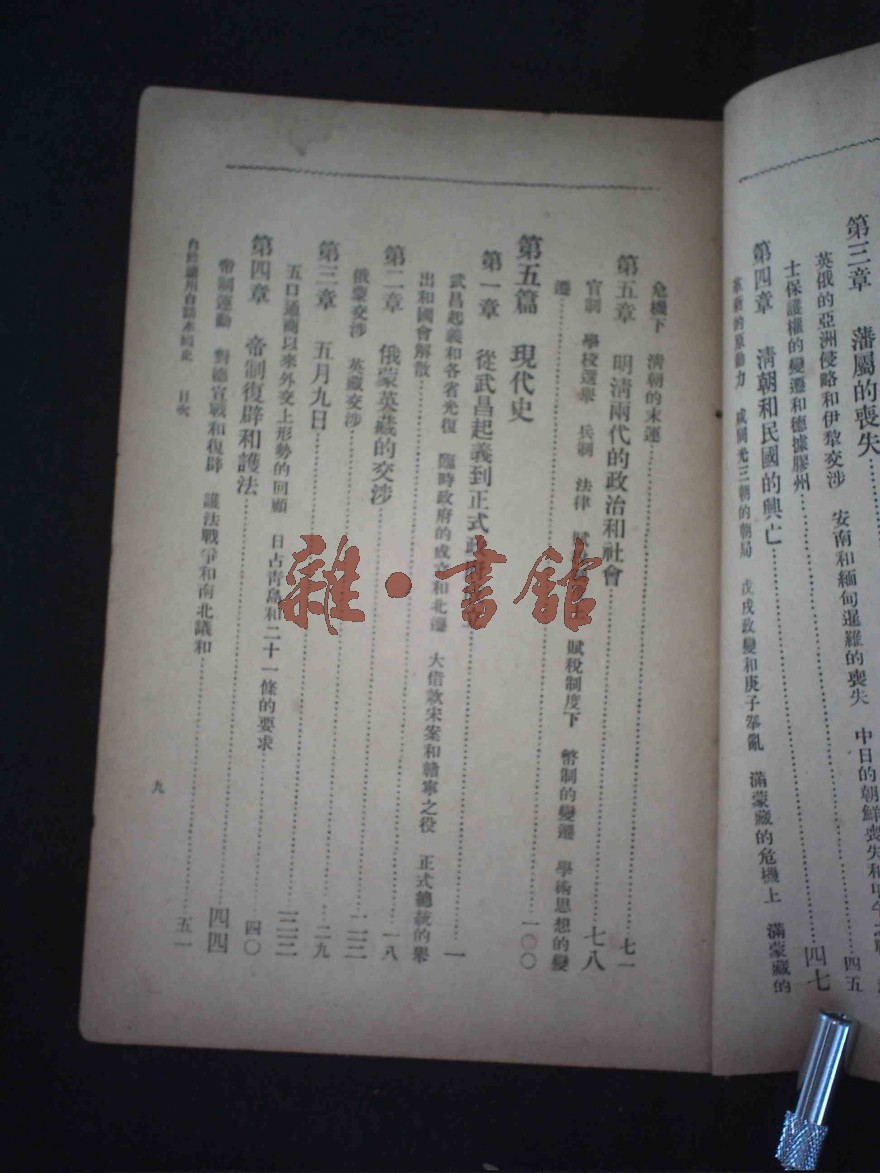 第三章　藩屬的喪失
英俄的亞洲侵略和伊犂交涉　安南和緬甸暹羅的喪失　中日的朝鮮
士保護權的變遷和德據膠州 四五
第四章　清朝和民國的興亡 四七
革新的原動力　咸同光三朝的朝局　戊戌政變和庚子拳亂　滿蒙藏的危機上　滿蒙藏的
危機下　清朝的末運 七一
第五章　明清兩代的政治和社會 七八
官制　學校選舉　兵制　法律　賦稅制度下　幣制的變遷　學術思想的變
遷 一〇〇
第五篇　現代史
第一章　從武昌起義到正式政府 一
武昌起義和各省光復　臨時政府的成立和北遷　大借款宋案和贛寧之役　正式總統的舉
出和國會解散 一八
第二章　俄蒙英藏的交涉
俄蒙交涉　英藏交涉
第三章　五月九日
五口通商以來外交上形勢的回顧　日占青島和二十一條的要求 四〇
第四章　帝制復辟和護法 四四
帝制運動　對德宣戰和復辟　護法戰爭和南北議和 五一
目次
九
雜·書館